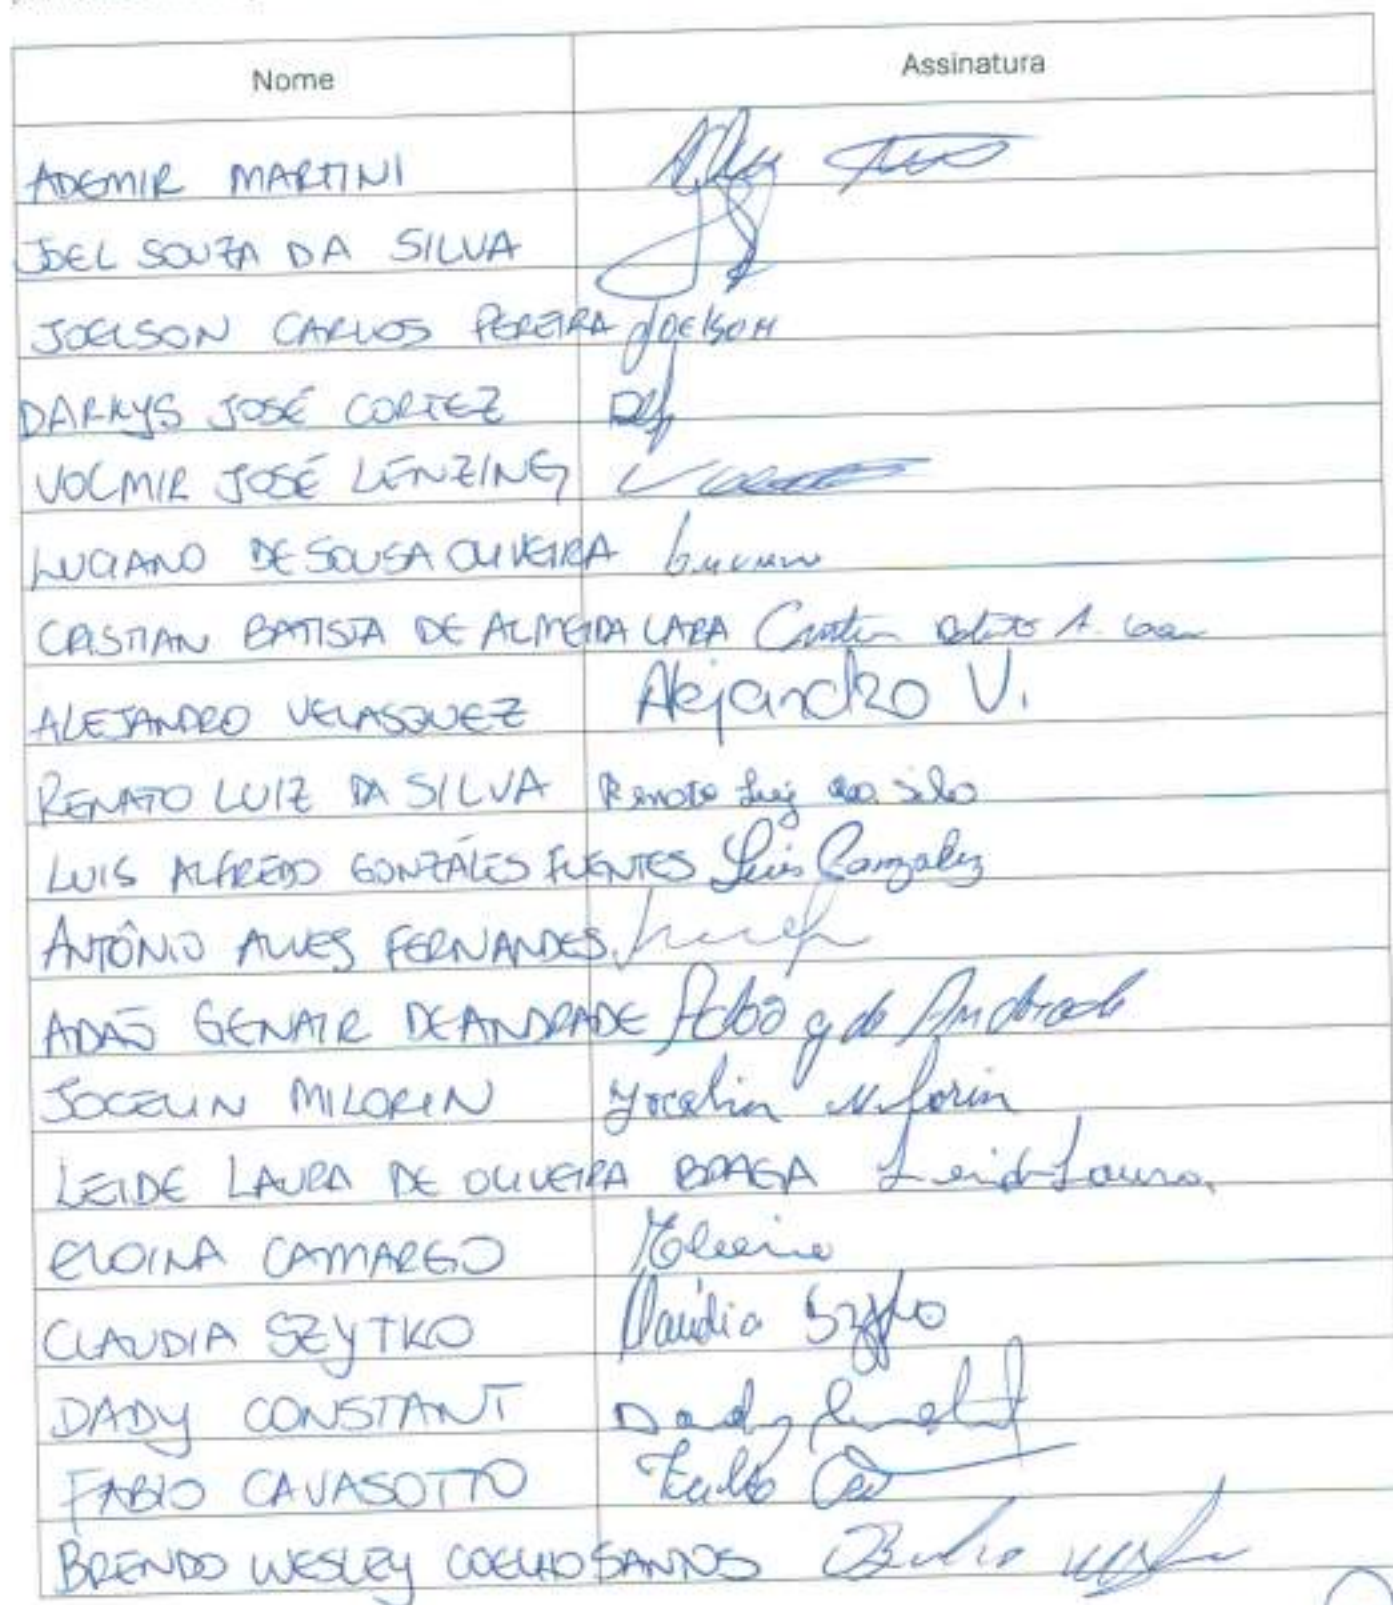 Nome Assinatura
ADEMIR MARTINI
JOEL SOUZA DA SILVA
JOELSON CARLOS PEREIRA Joelson
DARKYS JOSÉ CORTEZ
VOLMIR JOSÉ LENZING
LUCIANO DE SOUSA OLIVEIRA Luciano
CRISTIAN BATISTA DE ALMEIDA LARA Cristian Batista A. Lara
ALEJANDRO VELASQUEZ Alejandro V.
RENATO LUIZ DA SILVA Renato Luiz da Silva
LUIS ALFREDO GONZÁLES FUENTES Luis Gonzalez
ANTÔNIO ALVES FERNANDES
ADÃO GENAIR DE ANDRADE Adão g de Andrade
JOCELIN MILORIN Jocelin Milorin
LEIDE LAURA DE OLIVEIRA BRAGA Leide Laura
ELOINA CAMARGO Eloina
CLAUDIA SZYTKO Claudia Szytko
DADY CONSTANT Dady Constant
FABIO CAVASOTTO Fabio
BRENDO WESLEY COELHO SANTOS Brendo Wesley